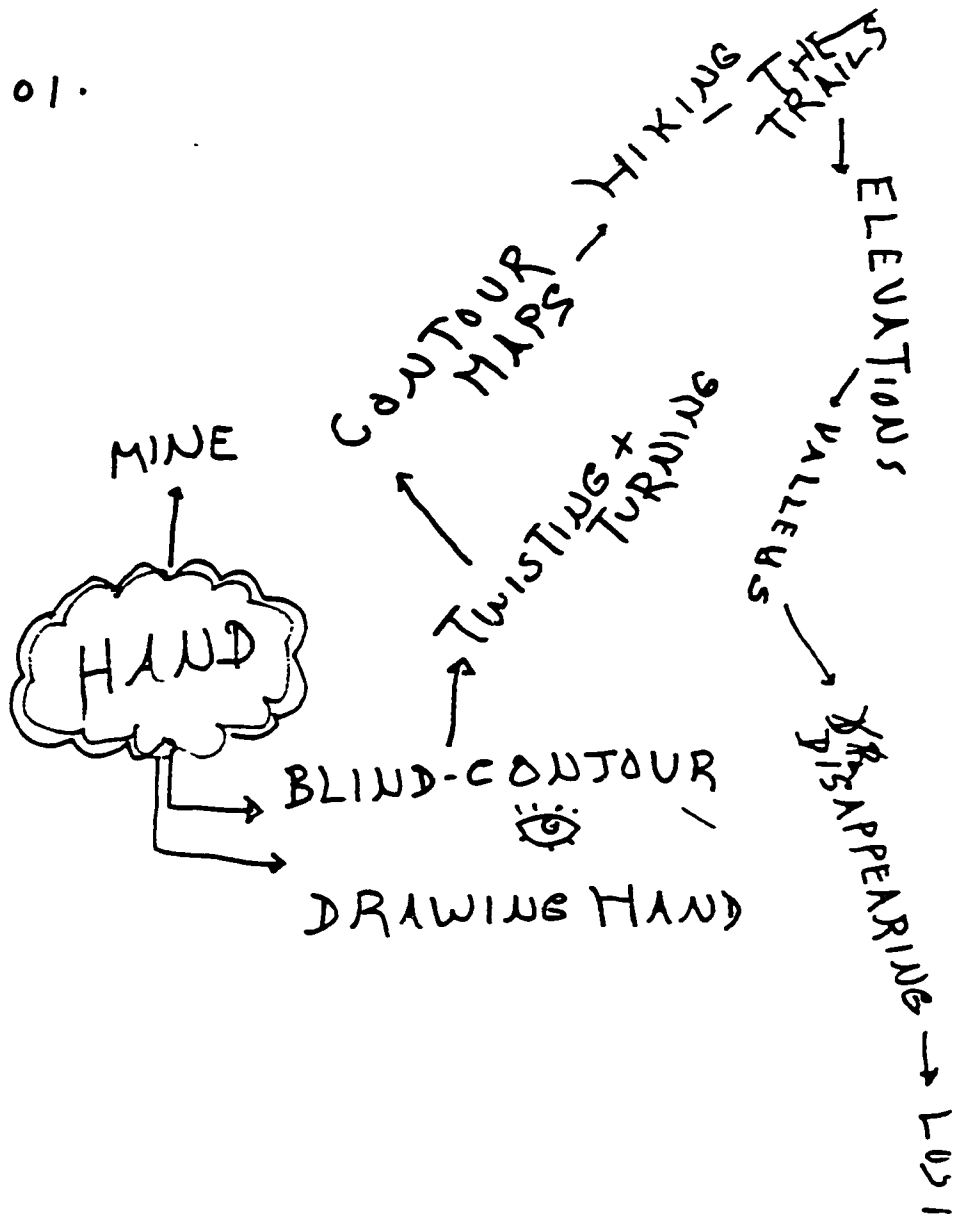 01.
MINE
HAND
BLIND-CONTOUR
DRAWING HAND
TWISTING +
TURNING
CONTOUR
MAPS
HIKING
THE
TRAILS
ELEVATIONS
VALLEYS
DISAPPEARING
LOST